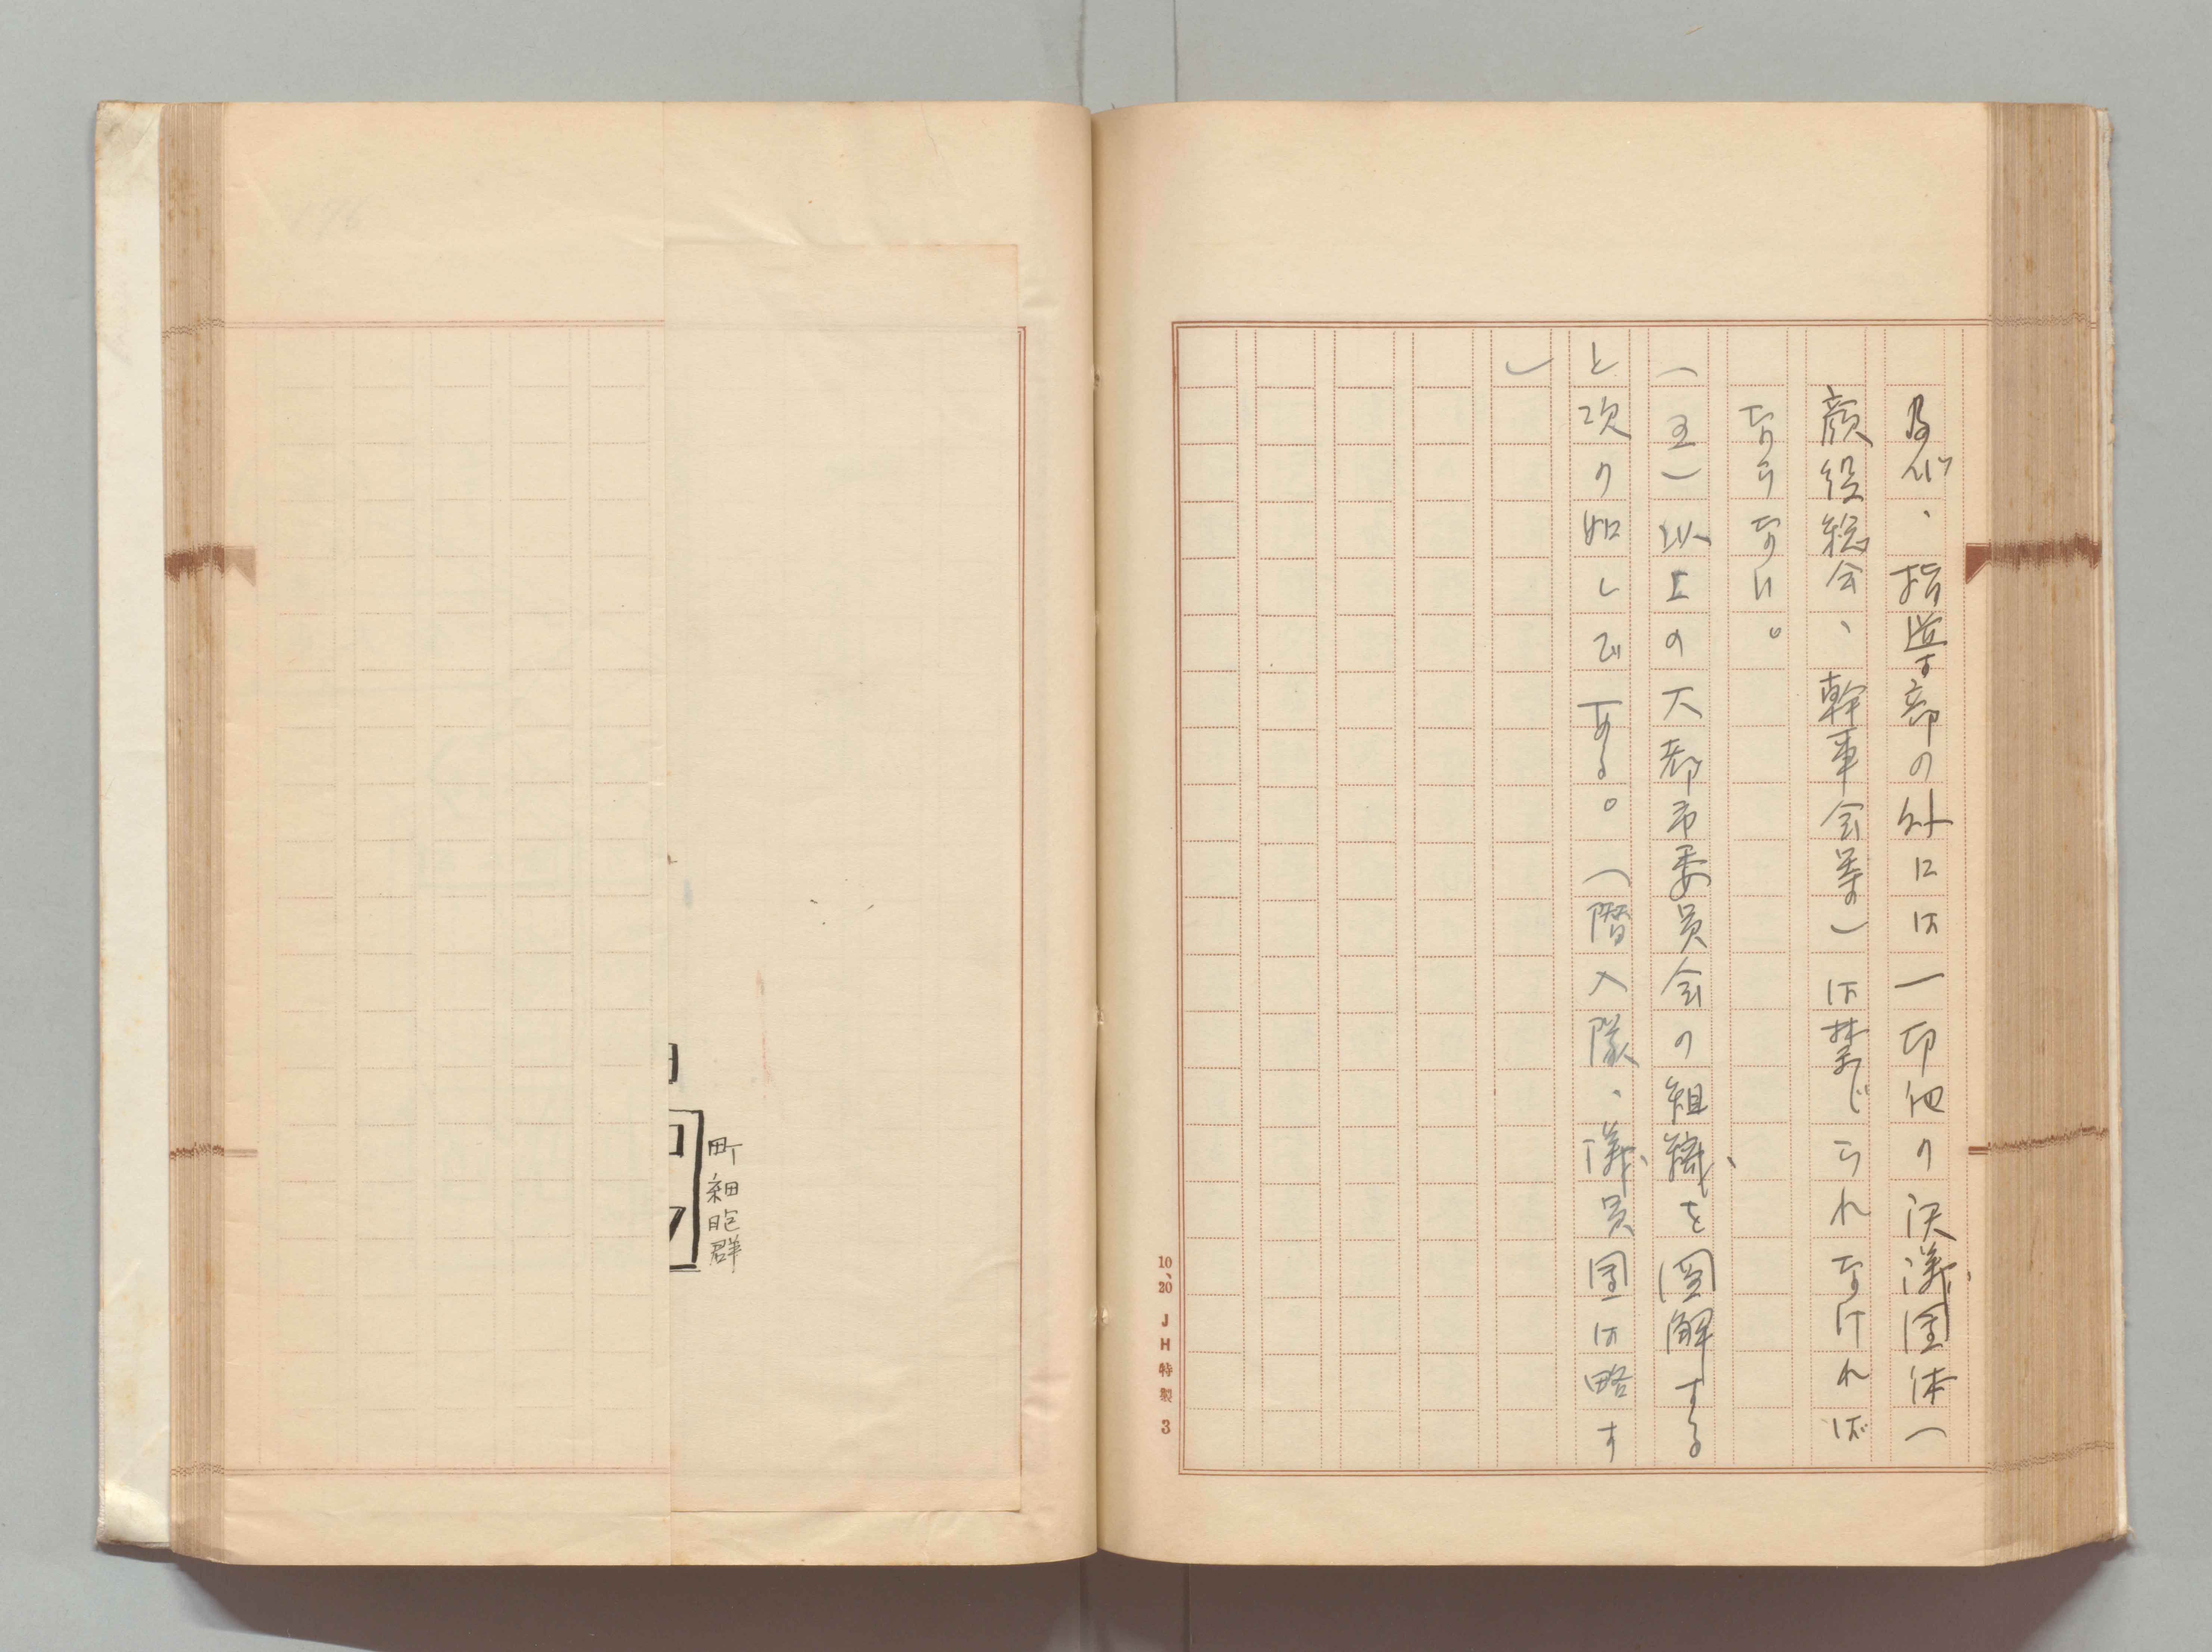 及び、指導部の外には一切他の決議団体（
顔役総会、幹事会等の）は禁じられなければ
ならない。
（五）以上の大都市委員会の組織を図解する
と次の如しである。（階入隊、議員団は略す
）
10、20 JH特製 3
町細胞群